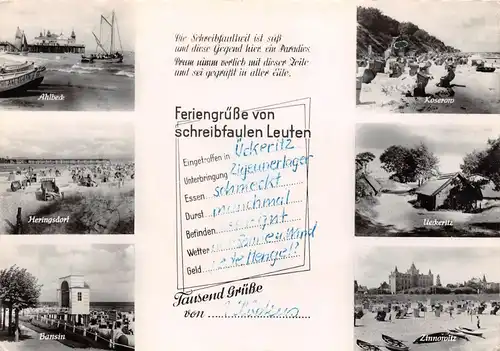 Die Schreibfaulheit ist süß
und diese Gegend hier ein Paradies
Drum nimm vorlieb mit dieser Zeile
und sei gegrüßt in aller Eile.
Feriengrüße von
schreibfaulen Leuten
Eingetroffen in Ückeritz
Unterbringung Zigeunerlager
Essen schmeckt
Durst manchmal
Befinden
Wetter
Geld
Tausend Grüße
von
Ahlbeck
Heringsdorf
Bansin
Koserow
Ueckeritz
Zinnowitz